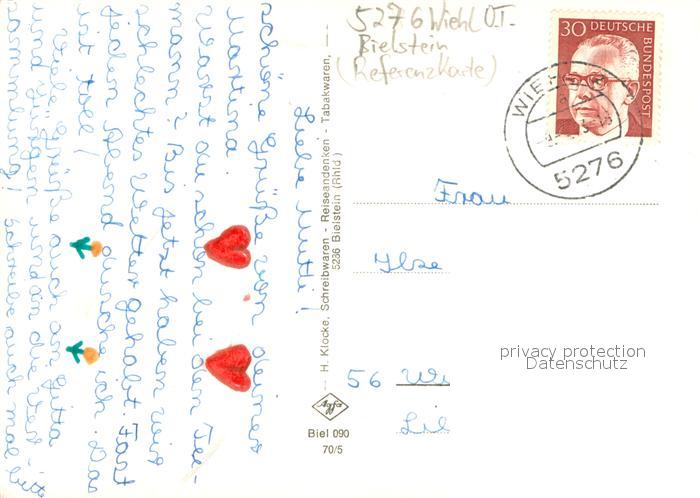 Liebe Mutti!
schöne Grüße von deiner
Martina.
Warst du schon bei den Fee-
mann? Bis jetzt haben wir
schlechtes Wetter gehabt. Fast
jeden Abend dusche ich. Das
ist toll!
Viele Grüße auch an Jutta
und Jürgen und an die
sammlung! Schreibe auch mal
H. Klocke, Schreibwaren - Reiseandenken - Tabakwaren,
5236 Bielstein (Rhld)
Agfa
Biel 090
70/5
5276 Wiehl O.T.
Bielstein
(Referenzkarte)
30 DEUTSCHE BUNDESPOST
WIEHL
5276
Frau
Ilse
56 Wu
Lil
privacy protection
Datenschutz